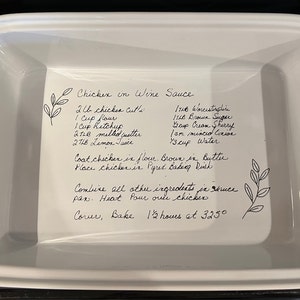 Chicken in Wine Sauce
2 lb chicken cut's
1 cup flour
1 cup Ketchup
2 TLB melted butter
2 TLB Lemon Juice
1 TLB Worcestershire
1 TLB Brown Sugar
½ cup Cream Sherry
1 sm minced Onion
⅓ cup Water
Coat chicken in flour Brown in Butter
Place chicken in Pyrex Baking Dish
Combine all other ingredients in Sauce
pan. Heat Pour over chicken
Cover, Bake 1½ hours at 325°